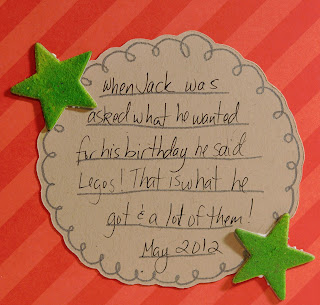 When Jack was
asked what he wanted
for his birthday he said
Legos! That is what he
got & a lot of them!
May 2012